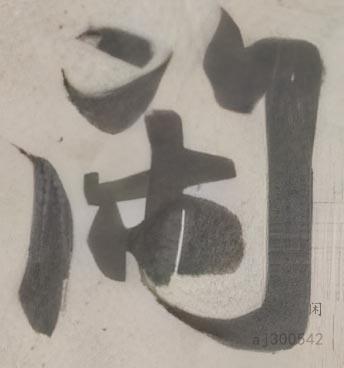 闲
闲
aj300542